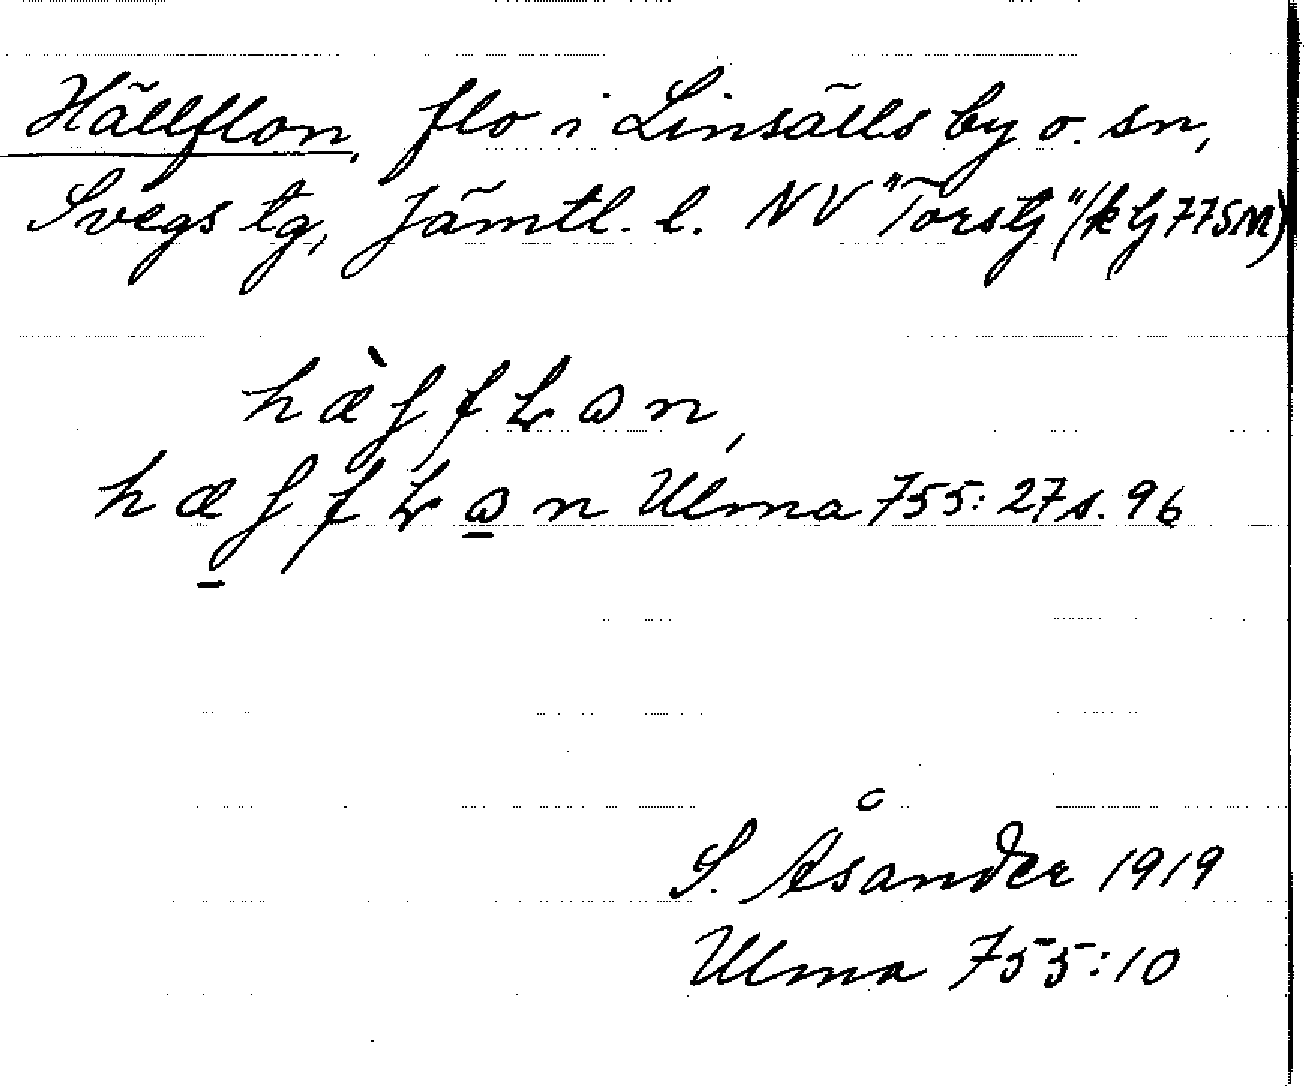 Hällflon, flo i Linsälls by o. sn,
Svegs tg, Jämtl. l. NV "Torstj" (k Lj 775M)
hæ̀ʃfLɷn,
hæʃfLɷ̲n Ulma 755:27 s. 96
S. Åsander 1919
Ulma 755:10